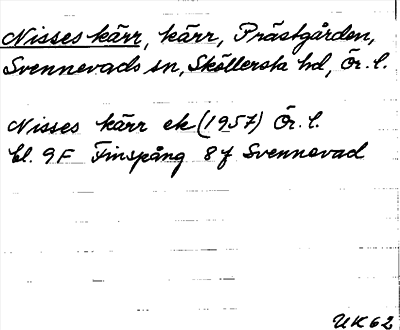 Nisses kärr, kärr, Prästgården,
Svennevads sn, Sköllersta hd, Ör. l.
Nisses kärr ek (1957) Ör. l.
bl. 9F Finspång 8 f Svennevad
UK62